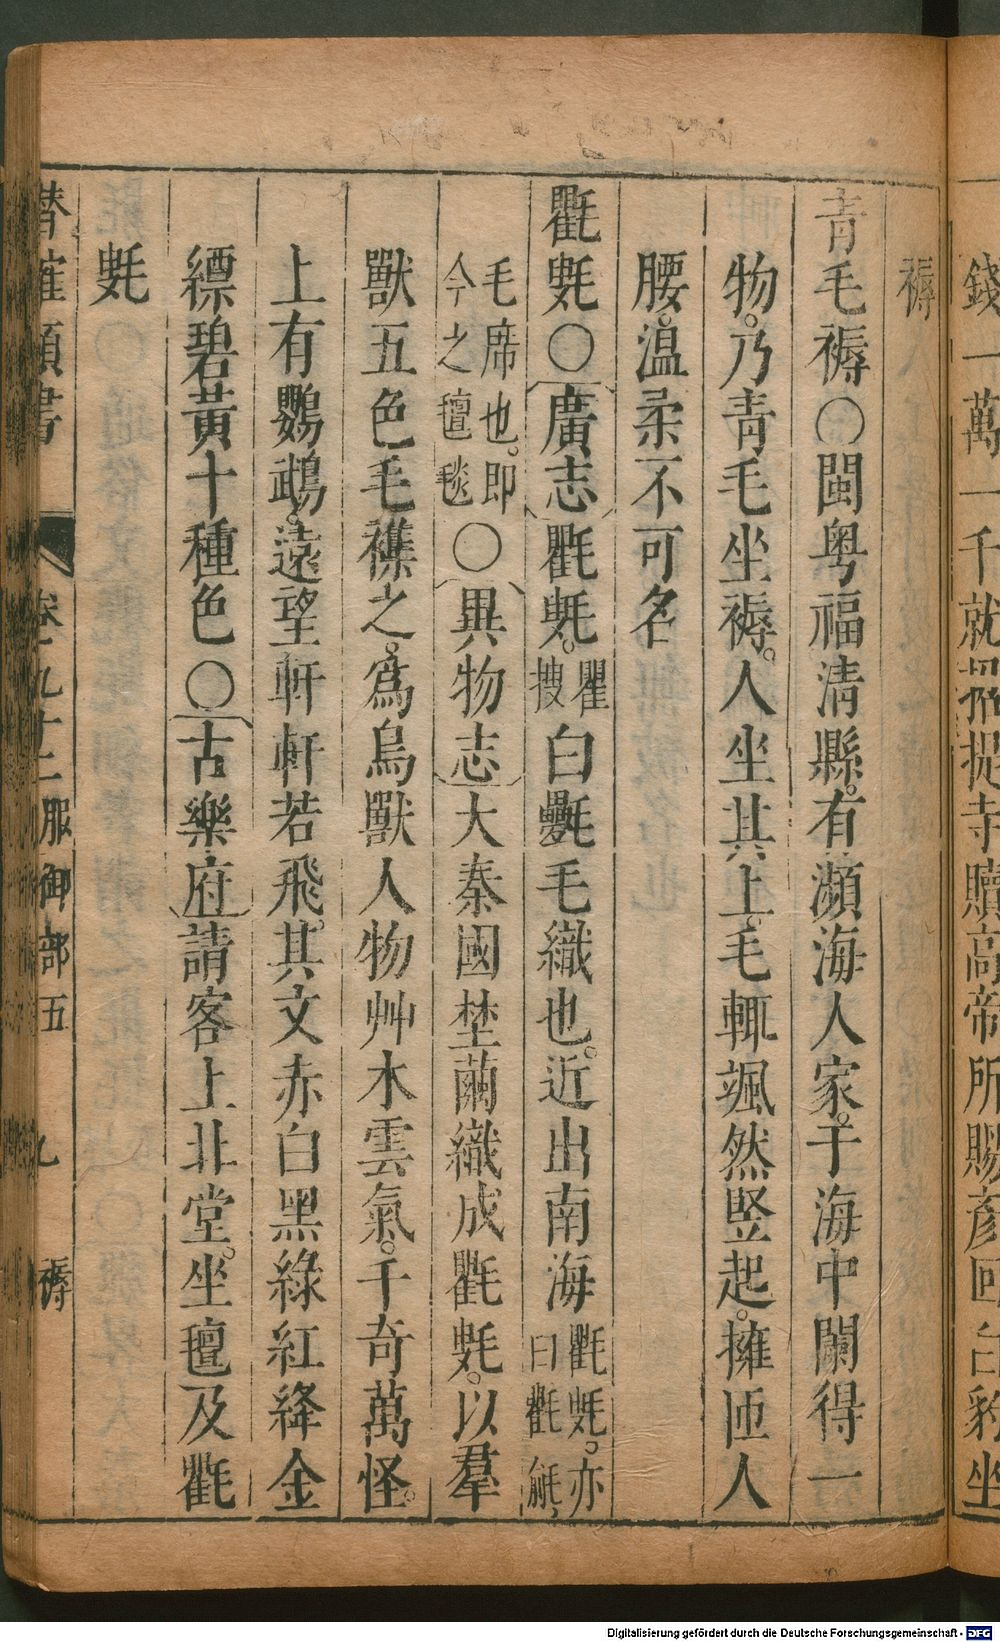 錢一萬一千就招提寺贖高帝所賜彥回白豹坐
褥
青毛褥〇閩粤福清縣。有瀕海人家。于海中闌得一
物。乃青毛坐褥。人坐其上。毛輒颯然竪起。擁匝人
腰。溫柔不可名
氍毹〇廣志氍毹。瞿搜白氎毛織也。近出南海氍毹。亦曰氍㲣,
毛席也。即今之氊毯〇異物志大秦國埜繭織成氍毹。以羣
獸五色毛襍之。爲鳥獸人物艸木雲氣。千奇萬怪。
上有鸚鵡。遠望軒軒若飛。其文赤白黑綠紅絳金
縹碧黃十種色〇古樂府請客上北堂。坐氊及氍
毹
潛確類書 卷九十二服御部五 九 褥
Digitalisierung gefördert durch die Deutsche Forschungsgemeinschaft - DFG